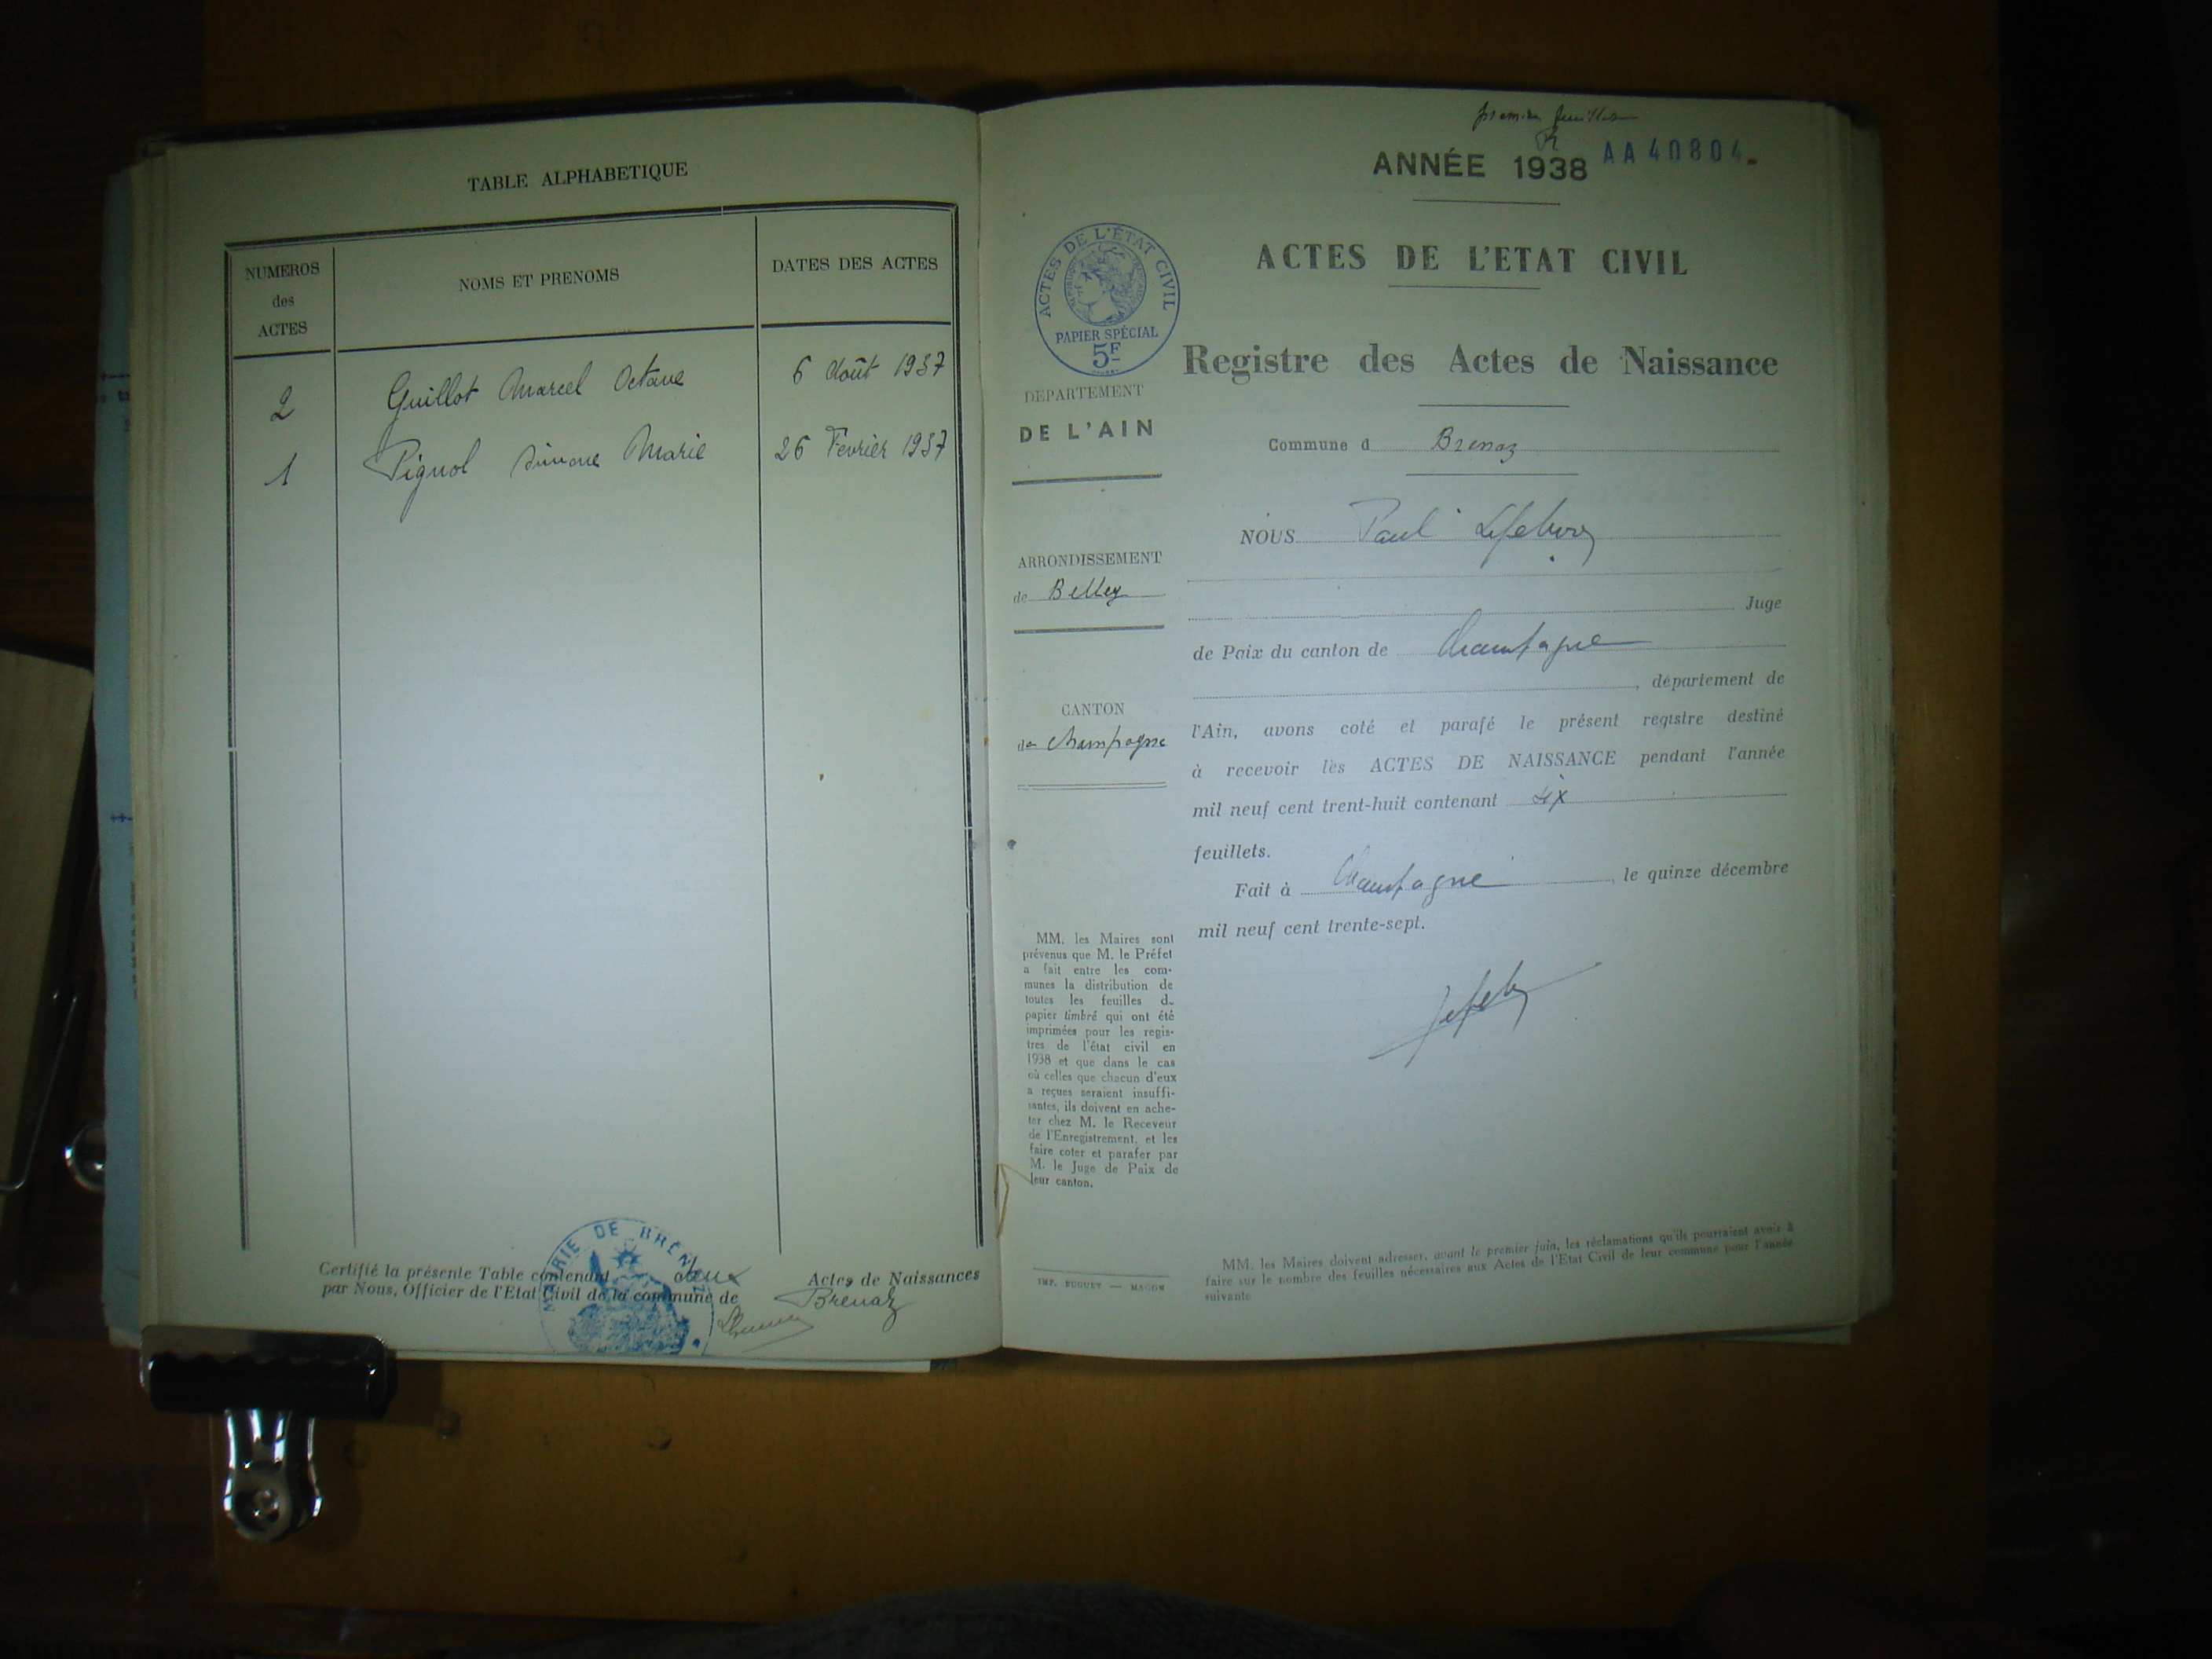 TABLE ALPHABETIQUE
NUMEROS
des
ACTES
NOMS ET PRENOMS
DATES DES ACTES
2 Guillot Marcel Octave 6 Août 1937
1 Pignol Simone Marie 26 Fevrier 1937
MAIRIE DE BRÉNAZ
Certifié la présente Table contenant deux Actes de Naissances
par Nous, Officier de l'Etat Civil de la commune de Brenaz
premier feuillet
ANNÉE 1938 AA 40804
ACTES DE L'ÉTAT CIVIL
PAPIER SPÉCIAL
5F
DEPARTEMENT
DE L'AIN
ARRONDISSEMENT
de Belley
CANTON
de Champagne
MM. les Maires sont
prévenus que M. le Préfet
a fait entre les com-
munes la distribution de
toutes les feuilles de
papier timbré qui ont été
imprimées pour les regis-
tres de l'état civil en
1938 et que dans le cas
où celles que chacun d'eux
a reçues seraient insuffi-
santes, ils doivent en ache-
ter chez M. le Receveur
de l'Enregistrement, et les
faire coter et parafer par
M. le Juge de Paix de
leur canton.
IMP. BUGUET — MACON
ACTES DE L'ETAT CIVIL
Registre des Actes de Naissance
Commune d Brenaz
NOUS Paul Lefebvre
Juge
de Paix du canton de Champagne
, département de
l'Ain, avons coté et parafé le présent registre destiné
à recevoir les ACTES DE NAISSANCE pendant l'année
mil neuf cent trent-huit contenant six
feuillets.
Fait à Champagne, le quinze décembre
mil neuf cent trente-sept.
MM. les Maires doivent adresser, avant le premier juin, les réclamations qu'ils pourraient avoir à
faire sur le nombre des feuilles nécessaires aux Actes de l'Etat Civil de leur commune pour l'année
suivante